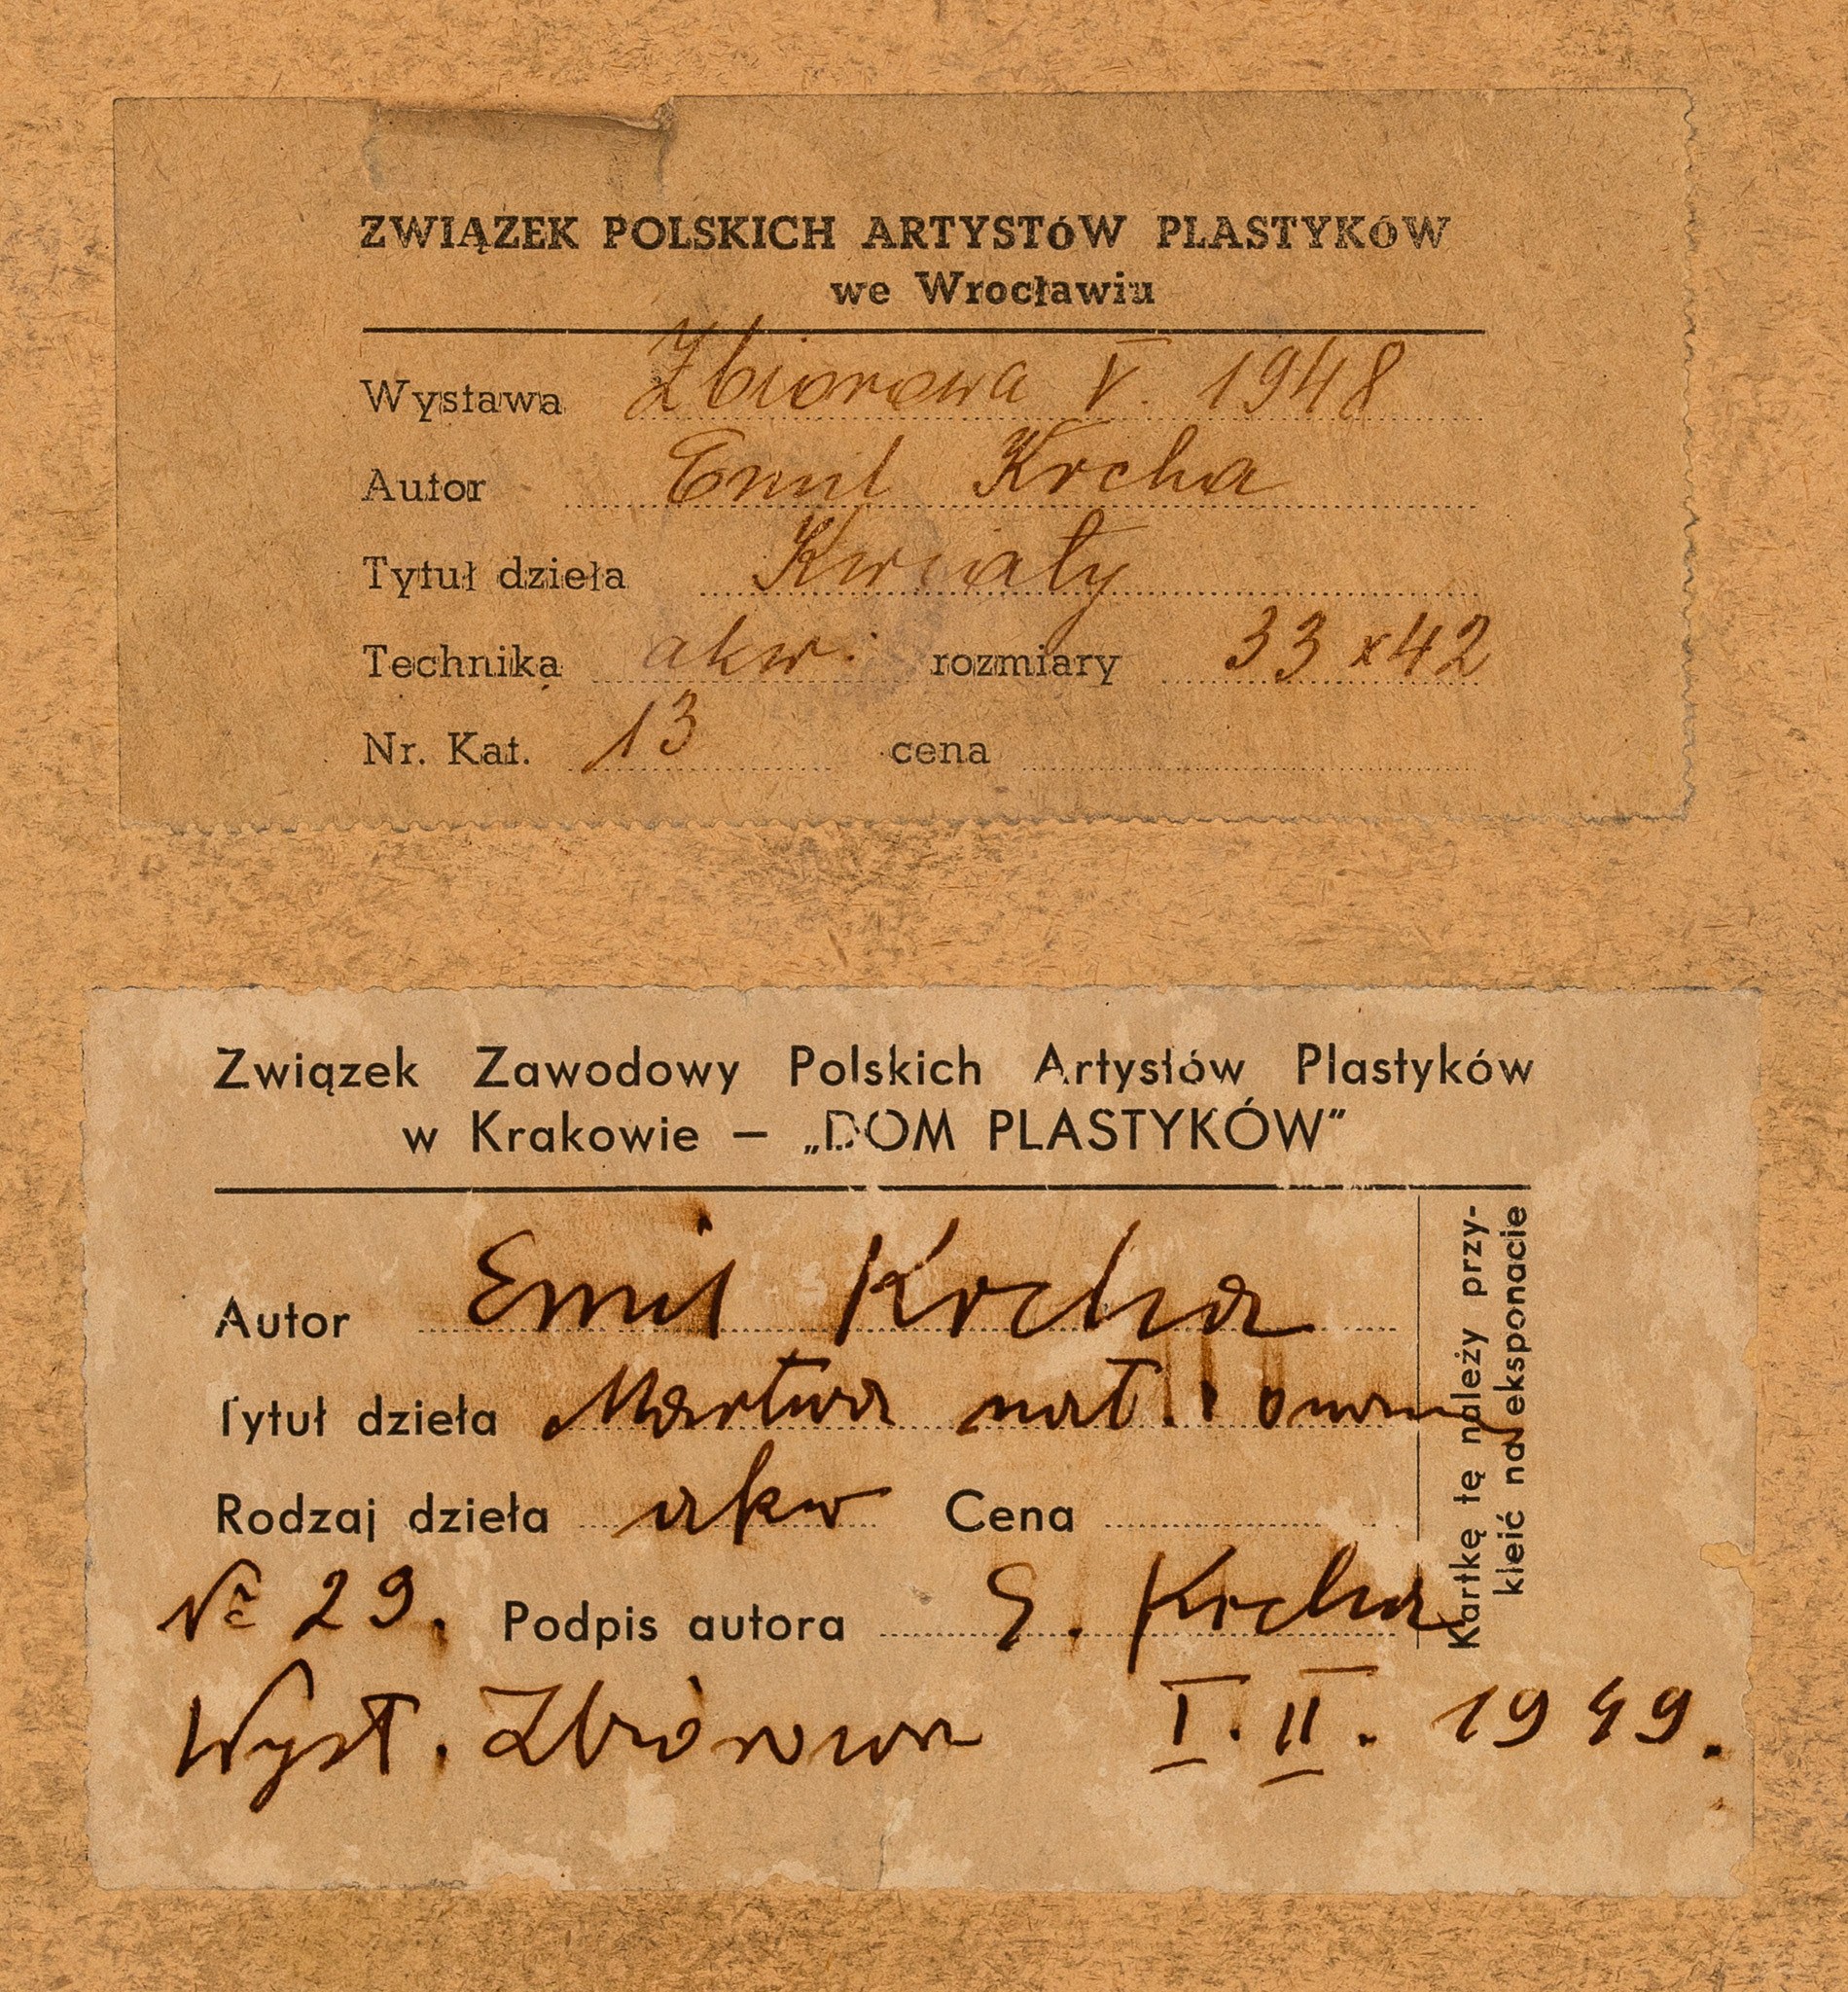 ZWIĄZEK POLSKICH ARTYSTÓW PLASTYKÓW
we Wrocławiu
Wystawa Zbiorowa V. 1948
Autor Emil Krcha
Tytuł dzieła Kwiaty
Technika akw. rozmiary 33 x 42
Nr. Kat. 13 cena
Związek Zawodowy Polskich Artystów Plastyków
w Krakowie – „DOM PLASTYKÓW”
Autor Emil Krcha
Tytuł dzieła Martwa nat.
Rodzaj dzieła akw Cena
Nr 29. Podpis autora E. Krcha
Wyst. Zbiorowa I. II. 1949.
Kartkę tę należy przy-
kleić na eksponacie